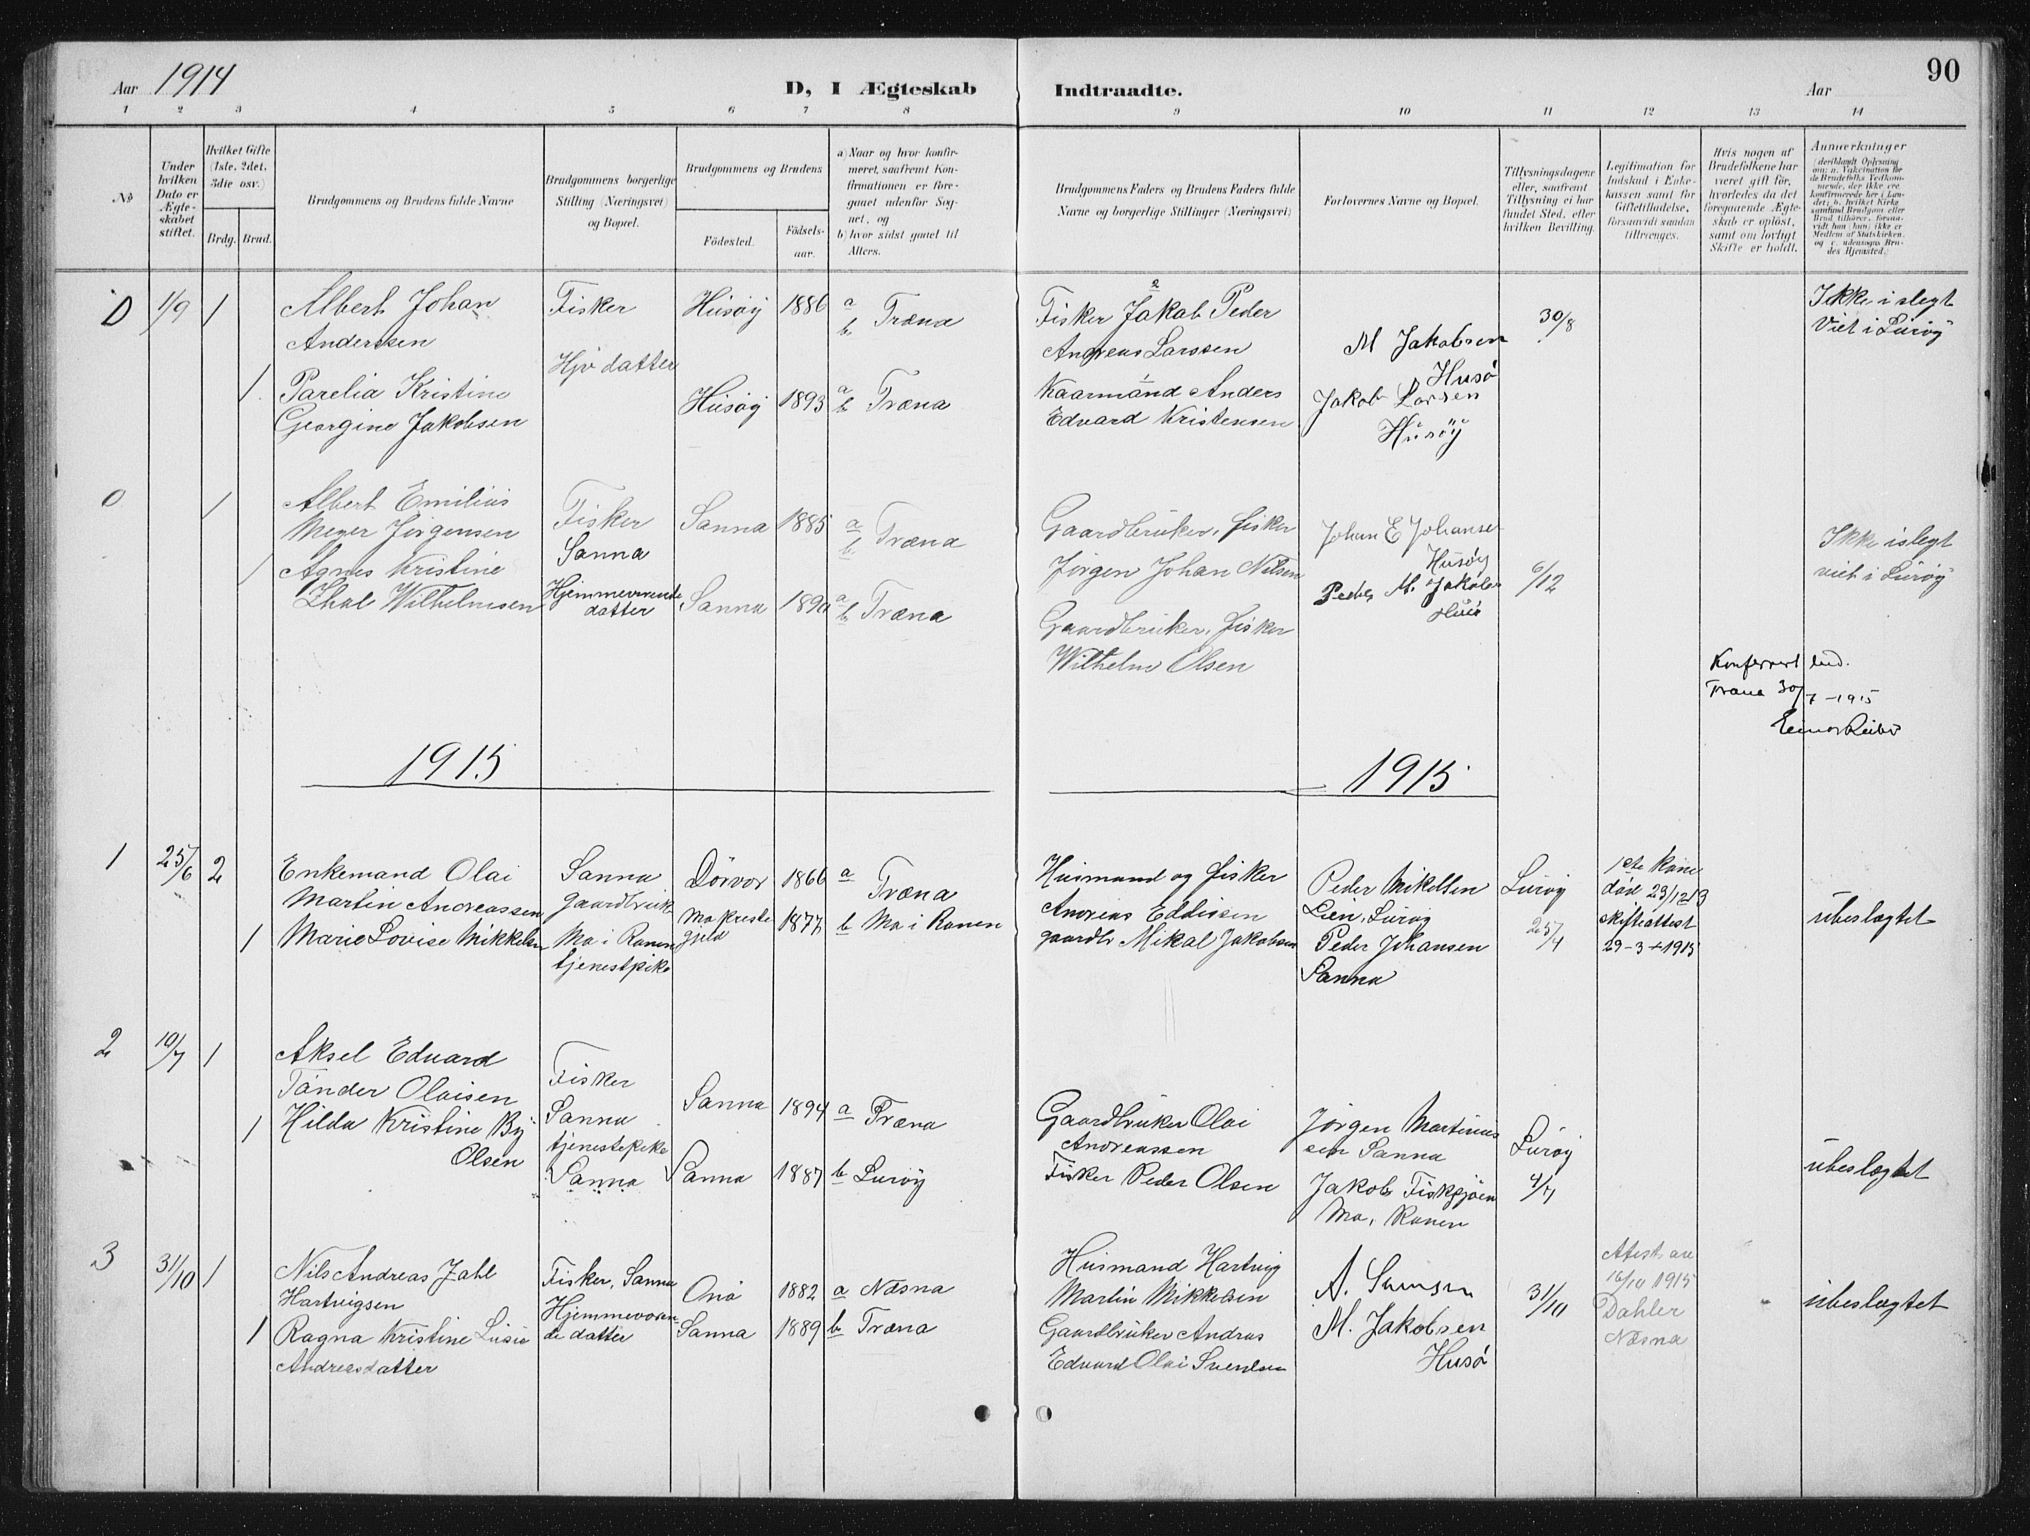 Aar 1914
D, I Ægteskab Indtraadte.
Aar
90
1 2 3 4 5 6 7 8 9 10 11 12 13 14
№
Under hvilken Dato er Ægteskabet stiftet.
Hvilket Gifte (1ste, 2det, 3die osv.)
Brdg. Brud.
Brudgommens og Brudens fulde Navne
Brudgommens borgerlige Stilling (Næringsvei) og Bopæl.
Brudgommens og Brudens
Fødested. Fødselsaar.
a) Naar og hvor konfirmeret, saafremt Konfirmationen er foregaaet udenfor Sognet, og
b) hvor sidst gaaet til Alters.
Brudgommens Faders og Brudens Faders fulde Navne og borgerlige Stillinger (Næringsvei)
Forlovernes Navne og Bopæl.
Tillysningsdagene eller, saafremt Tillysning ei har fundet Sted, efter hvilken Bevilling.
Legitimation for Indskud i Enkekassen samt for Giftetilladelse, forsaavidt saadan tiltrænges.
Hvis nogen af Brudefolkene har været gift før, hvorledes da det foregaaende Ægteskab er opløst, samt om lovligt Skifte er holdt.
Anmerkninger
0 1/9 1
Albert Johan
Anderssen
Fisker
Husøy 1886 a b Træna
Fisker Jakob Peder
Andreas Larssen
M Jakobsen
Husø
30/8
Ikke i slegt
Viet i Lurøy
1
Parelia Kristine
Georgine Jakobsen
Hjv datter
Husøy 1893 a b Træna
Kaarmand Anders
Edvard Kristensen
Jakob Larsen
Husöy
0 1
Albert Emilius
Meyer Jørgensen
Fisker
Sanna
Sanna 1885 a b Træna
Gaardbruker, fisker
Jørgen Johan Nilsen
Johan E Johanse
Husøy
6/12
Ikke i slegt
viet i Lurøy
1
Agnes Kristine
Wilhelmsen
Hjemmeværende
datter
Sanna 1890 a b Træna
Gaardbruker, fisker
Wilhelm Olsen
Peder M. Jakobs
Husø
Konferert Ind.
Træna 30/7 - 1915
1915
1915
1 25/6 2
Enkemand Olai
Martin Andreassen
Sanna
gaardbruk
Dörvor 1866 a Træna
Husmand og fisker
Andreas Eddissen
Peder Mikelsen
Lien, Lurøy
Lurøy
25/4
1ste Kone
död 29/12 13
skifteattest
29-3-1915
ubeslægtet
1
Marie Lovise Mikkelsen
Mo i Ranen
tjenestpike
Mo Preste
gjeld
1877 b Mo i Ranen
gaardbr Mikal Jakobsen
Peder Johansen
Sanna
2 10/7 1
Aksel Edvard
Tönder Olaisen
Fisker
Sanna
Sanna 1894 a Træna
Gaardbruker Olai
Andreassen
Jörgen Martinus
sen Sanna
Lurøy
4/7
ubeslægtet
1
Hilda Kristine By
Olsen
tjenestepike
Sanna
Sanna 1887 b Lurøy
Fisker Peder Olsen
Jakob Fiskgjöen
Mo, Ranen
3 31/10 1
Nils Andreas Zahl
Hartvigsen
Fisker, Sanna
Onö 1882 a Næsna
Husmand Hartvig
Martin Mikkelsen
31/10
Attest av
16/10 1915
Dahler
Næsna
ubeslægtet
1
Ragna Kristine Lusie
Andreasdatter
Hjemmeværen
de datter
Sanna 1889 b Træna
Gaardbruker Andreas
Edvard Olai Svendsen
M. Jakobsen
Husø